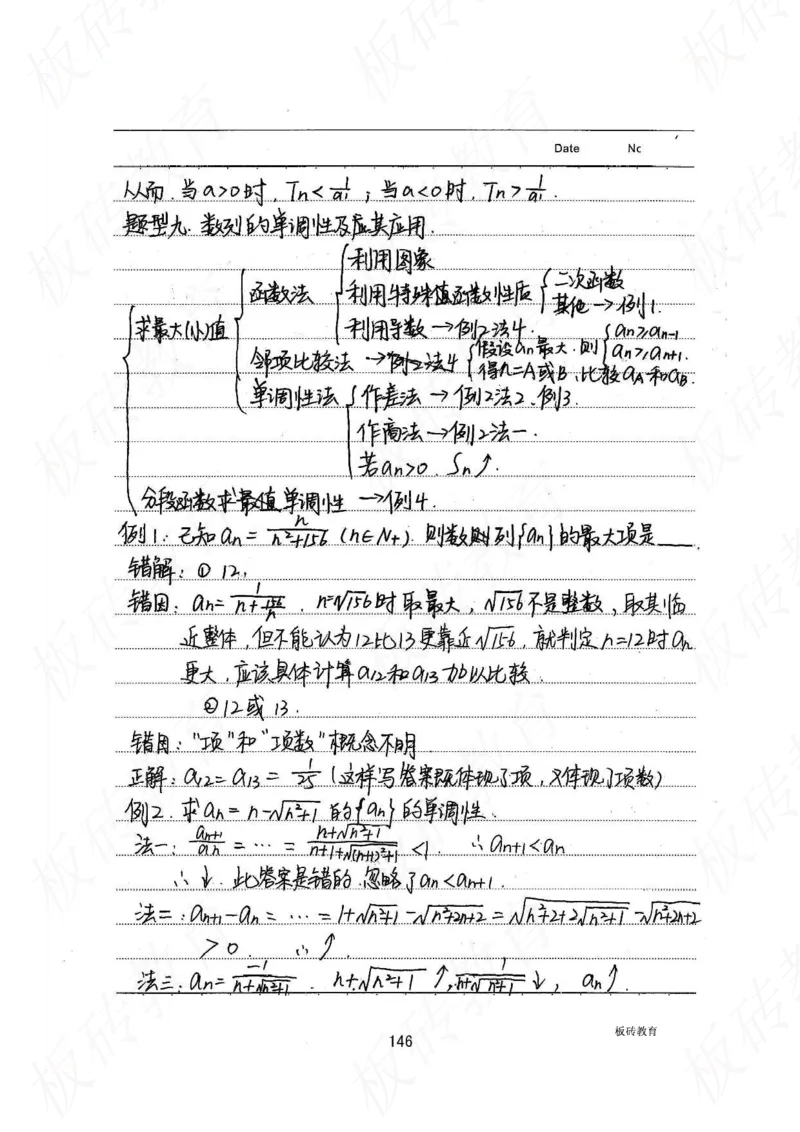 Date No
从而.当a>0时,Tn<1/a1;当a<0时,Tn>1/a1.
题型九.数列的单调性及应其应用.
利用图象
函数法 利用特殊值函数性质 二次函数
其他→例1.
求最大(小)值 利用导数→例2法4. an≥an-1
邻项比较法→例2法4 假设an最大.则 an≥an+1.
得n=A或B,比较aA和aB.
单调性法 作差法→例2法2.例3.
作商法→例2法一.
若an>0.Sn↑.
分段函数求最值,单调性→例4.
例1:已知an=n/(n²+156)(n∈N+).则数列{an}的最大项是____.
错解:①12,
错因:an=1/(n+156/n).n=√156时取最大,√156不是整数,取其临
近整体,但不能认为12比13更靠近√156,就判定n=12时an
更大,应该具体计算a12和a13加以比较.
②12或13.
错因:"项"和"项数"概念不明
正解:a12=a13=1/25(这样写答案既体现了项,又体现了项数)
例2.求an=n-√(n²+1)的{an}的单调性.
法一:an+1/an=…=(n+√(n²+1))/(n+1+√((n+1)²+1))<1.∴an+1<an
∴↓.此答案是错的.忽略了an<an+1.
法二:an+1-an=…=1+√(n²+1)-√(n²+2n+2)=√(n²+2+2√(n²+1))-√(n²+2n+2)
>0.∴↑.
法三:an=-1/(n+√(n²+1)).n+√(n²+1)↑,1/(n+√(n²+1))↓,an↑.
板砖教育
146